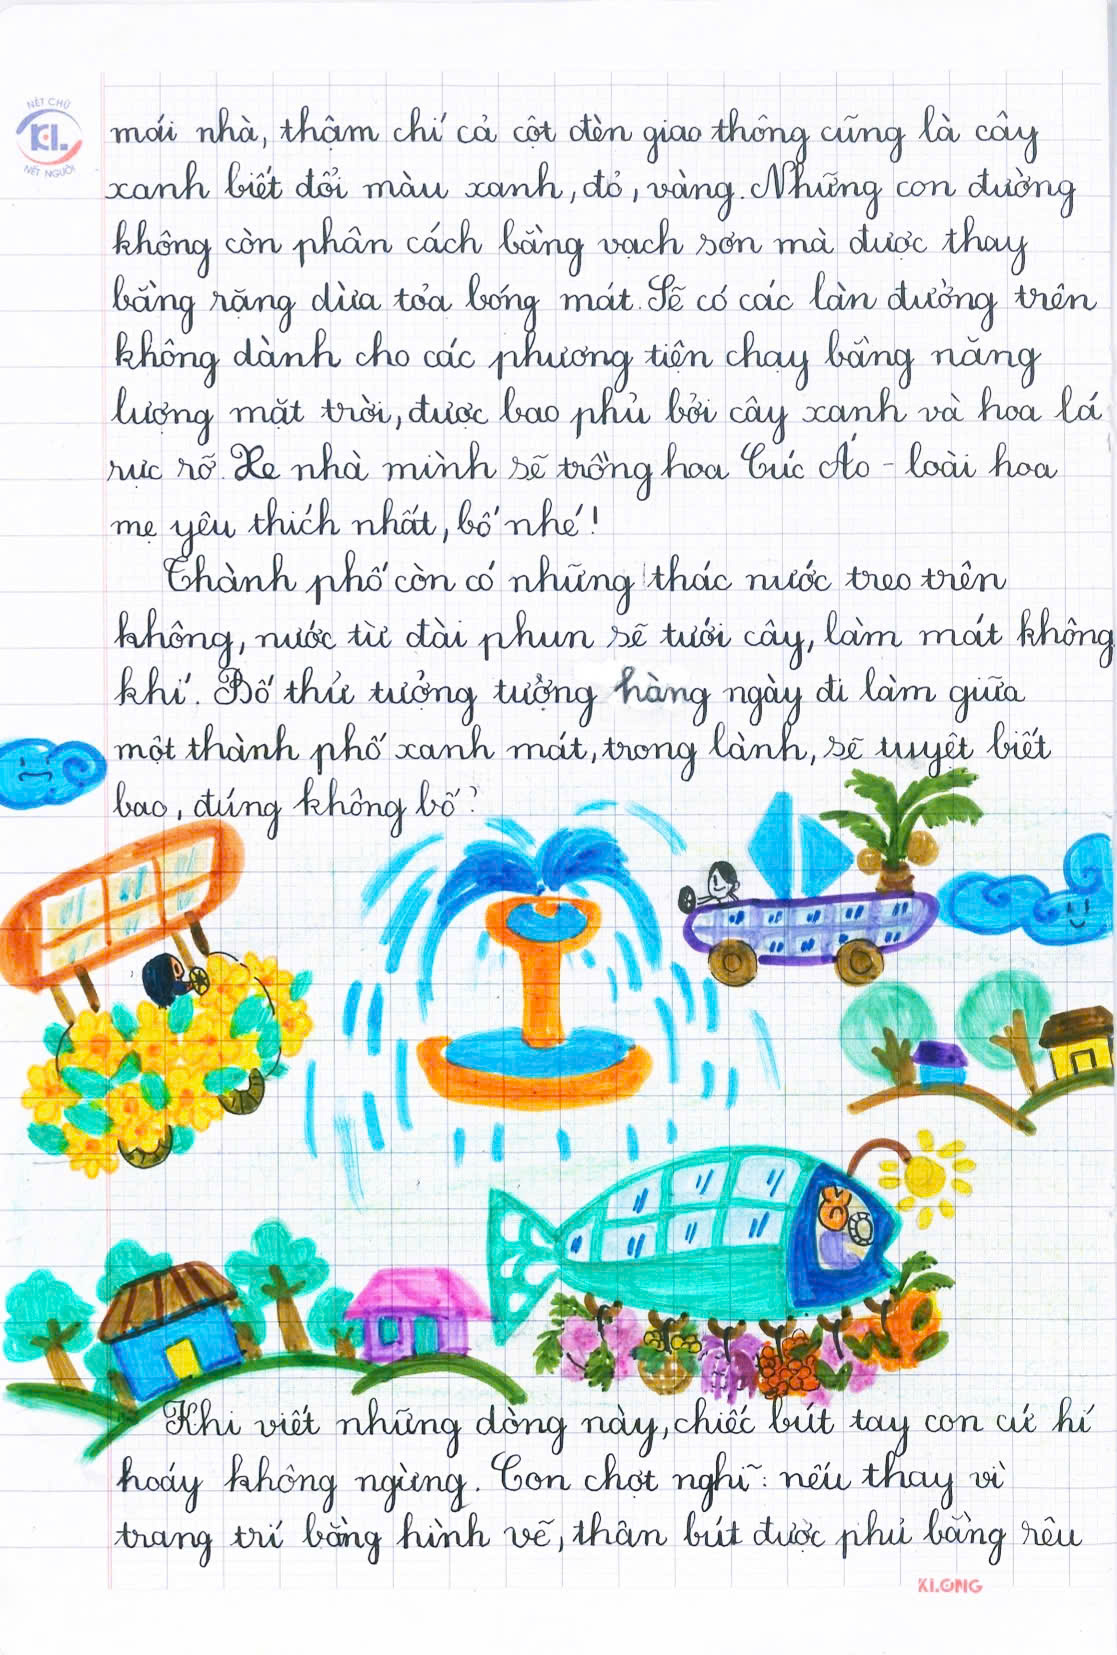 NÉT CHỮ
KL.
NẾT NGƯỜI
mái nhà, thậm chí cả cột đèn giao thông cũng là cây
xanh biết đổi màu xanh, đỏ, vàng. Những con đường
không còn phân cách bằng vạch sơn mà được thay
bằng rặng dừa tỏa bóng mát. Sẽ có các làn đường trên
không dành cho các phương tiện chạy bằng năng
lượng mặt trời, được bao phủ bởi cây xanh và hoa lá
rực rỡ. Xe nhà mình sẽ trồng hoa Cúc Áo - loài hoa
mẹ yêu thích nhất, bố nhé!
Thành phố còn có những thác nước treo trên
không, nước từ đài phun sẽ tưới cây, làm mát không
khí. Bố thử tưởng tượng hàng ngày đi làm giữa
một thành phố xanh mát, trong lành, sẽ tuyệt biết
bao, đúng không bố?
Khi viết những dòng này, chiếc bút tay con cứ hí
hoáy không ngừng. Con chợt nghĩ: nếu thay vì
trang trí bằng hình vẽ, thân bút được phủ bằng rêu
KLONG